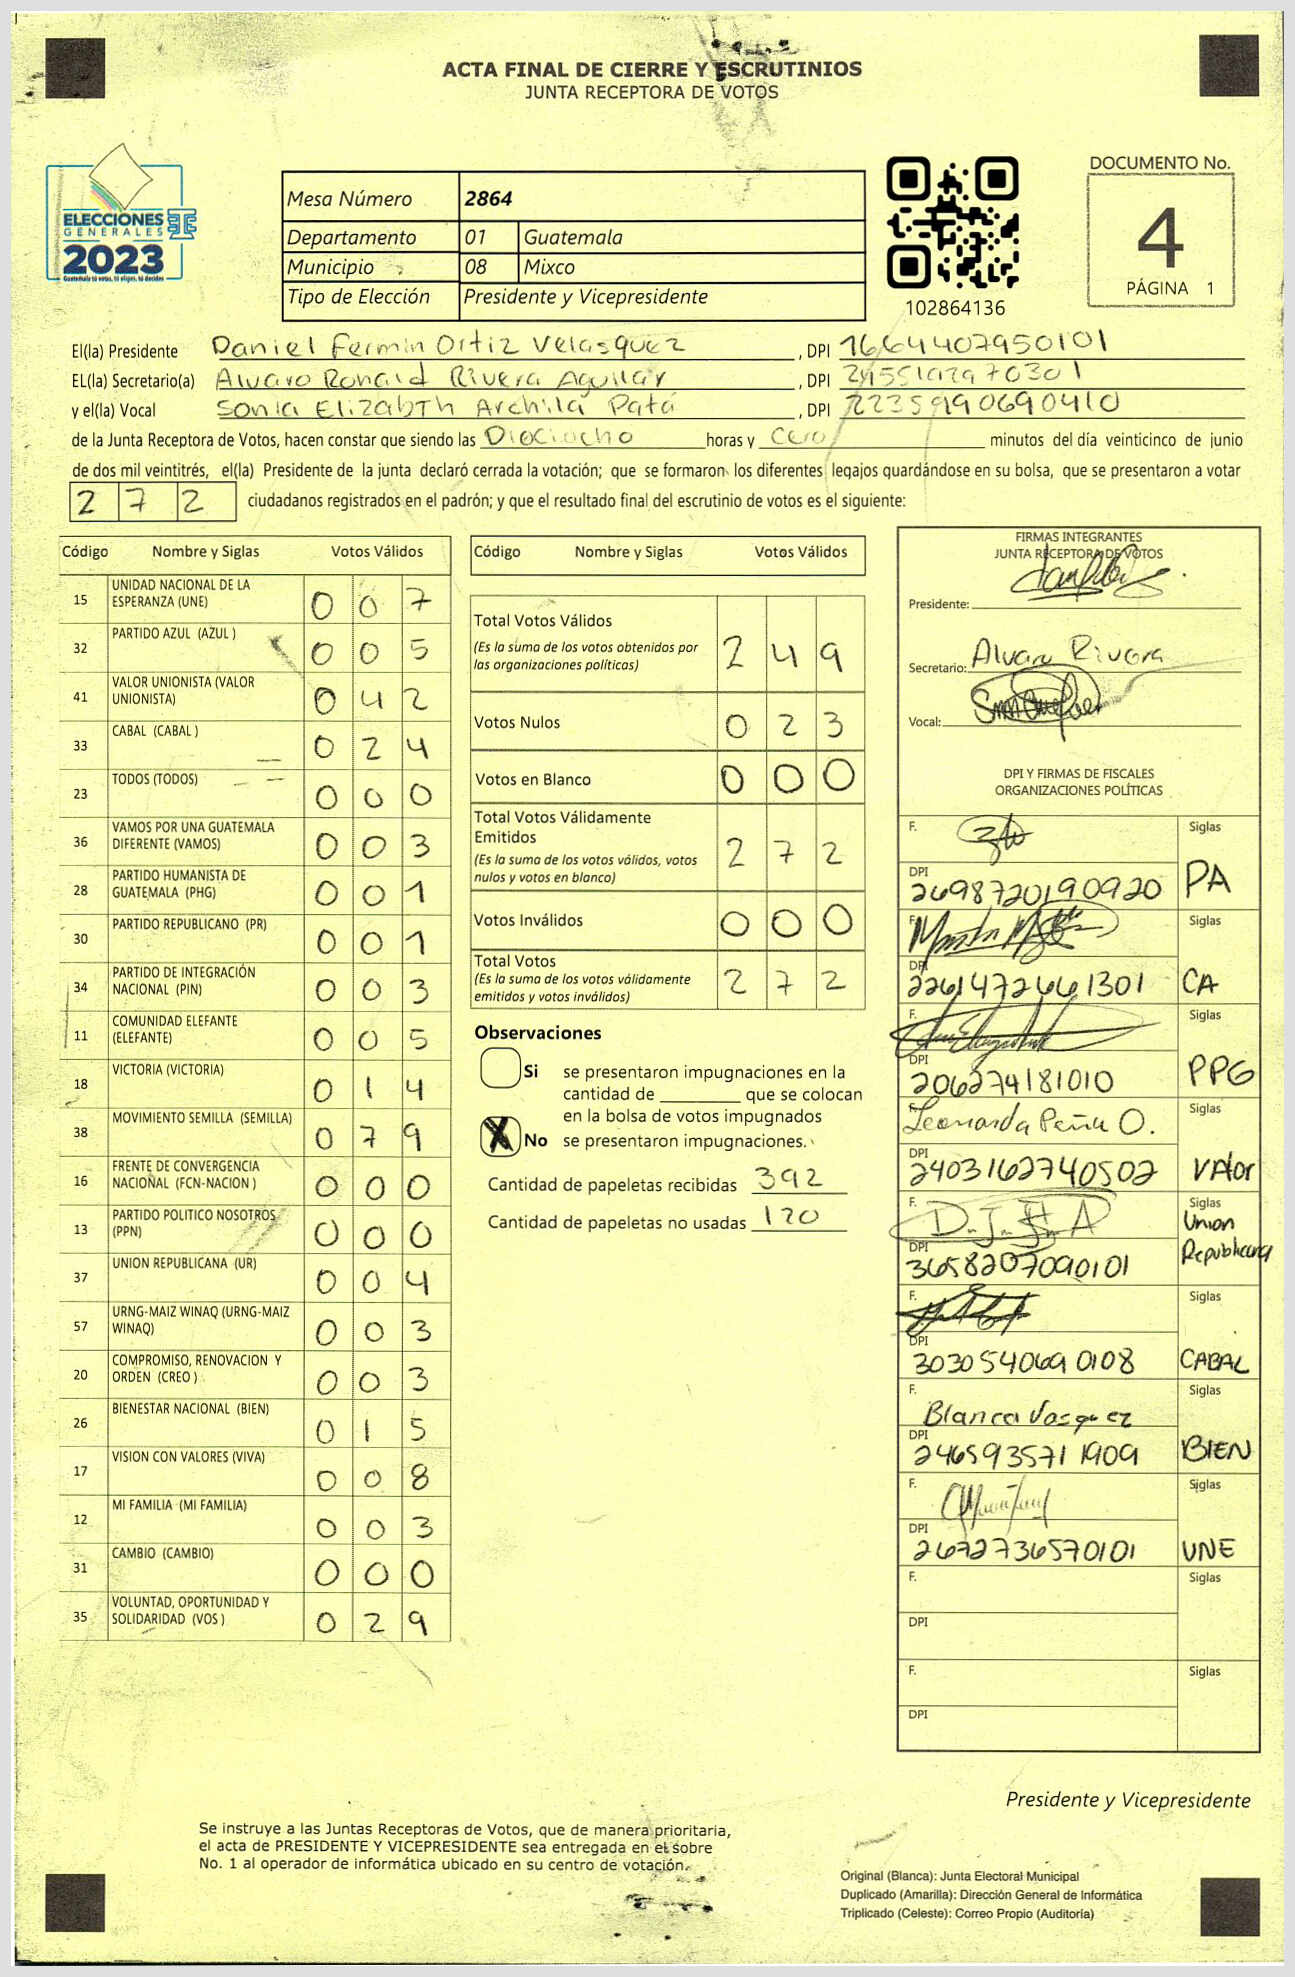 ACTA FINAL DE CIERRE Y ESCRUTINIOS
JUNTA RECEPTORA DE VOTOS
ELECCIONES
GENERALES
2023
Guatemala tú votas, tú eliges, tú decides
Mesa Número 2864
Departamento 01 Guatemala
Municipio 08 Mixco
Tipo de Elección Presidente y Vicepresidente
102864136
DOCUMENTO No.
4
PÁGINA 1
El(la) Presidente Daniel Fermin Ortiz Velasquez , DPI 1664407950101
EL(la) Secretario(a) Alvaro Ronald Rivera Aguilar , DPI
y el(la) Vocal Sonia Elizabth Archila Patá , DPI 2235990690410
de la Junta Receptora de Votos, hacen constar que siendo las Dieciocho horas y Cero minutos del día veinticinco de junio
de dos mil veintitrés, el(la) Presidente de la junta declaró cerrada la votación; que se formaron los diferentes legajos guardándose en su bolsa, que se presentaron a votar
272 ciudadanos registrados en el padrón; y que el resultado final del escrutinio de votos es el siguiente:
Código Nombre y Siglas Votos Válidos
15 UNIDAD NACIONAL DE LA ESPERANZA (UNE) 007
32 PARTIDO AZUL (AZUL ) 005
41 VALOR UNIONISTA (VALOR UNIONISTA) 042
33 CABAL (CABAL ) 024
23 TODOS (TODOS) 000
36 VAMOS POR UNA GUATEMALA DIFERENTE (VAMOS) 003
28 PARTIDO HUMANISTA DE GUATEMALA (PHG) 001
30 PARTIDO REPUBLICANO (PR) 001
34 PARTIDO DE INTEGRACIÓN NACIONAL (PIN) 003
11 COMUNIDAD ELEFANTE (ELEFANTE) 005
18 VICTORIA (VICTORIA) 014
38 MOVIMIENTO SEMILLA (SEMILLA) 079
16 FRENTE DE CONVERGENCIA NACIONAL (FCN-NACION ) 000
13 PARTIDO POLITICO NOSOTROS (PPN) 000
37 UNION REPUBLICANA (UR) 004
57 URNG-MAIZ WINAQ (URNG-MAIZ WINAQ) 003
20 COMPROMISO, RENOVACION Y ORDEN (CREO ) 003
26 BIENESTAR NACIONAL (BIEN) 015
17 VISION CON VALORES (VIVA) 008
12 MI FAMILIA (MI FAMILIA) 003
31 CAMBIO (CAMBIO) 000
35 VOLUNTAD, OPORTUNIDAD Y SOLIDARIDAD (VOS ) 029
Código Nombre y Siglas Votos Válidos
Total Votos Válidos 249
(Es la suma de los votos obtenidos por
las organizaciones políticas)
Votos Nulos 023
Votos en Blanco 000
Total Votos Válidamente
Emitidos 272
(Es la suma de los votos válidos, votos
nulos y votos en blanco)
Votos Inválidos 000
Total Votos 272
(Es la suma de los votos válidamente
emitidos y votos inválidos)
Observaciones
Si se presentaron impugnaciones en la
cantidad de que se colocan
en la bolsa de votos impugnados
X No se presentaron impugnaciones.
Cantidad de papeletas recibidas 392
Cantidad de papeletas no usadas 120
FIRMAS INTEGRANTES
JUNTA RECEPTORA DE VOTOS
Presidente:
Secretario: Alvaro Rivera
Vocal:
DPI Y FIRMAS DE FISCALES
ORGANIZACIONES POLÍTICAS
F. Siglas
DPI 2698720190920 PA
F. Siglas
DPI 2261472661301 CA
F. Siglas
DPI 206274181010 PPG
F. Leonarda Peña O. Siglas
DPI 2403162740502 VAlor
F. Siglas
Union
Republicana
DPI 3658207090101
F. Siglas
DPI 3030540690108 CABAL
F. Blanca Vasquez Siglas
DPI 2465935711909 BIEN
F. Siglas
DPI 2672736570101 UNE
F. Siglas
DPI
F. Siglas
DPI
Presidente y Vicepresidente
Se instruye a las Juntas Receptoras de Votos, que de manera prioritaria,
el acta de PRESIDENTE Y VICEPRESIDENTE sea entregada en el sobre
No. 1 al operador de informática ubicado en su centro de votación.
Original (Blanca): Junta Electoral Municipal
Duplicado (Amarilla): Dirección General de Informática
Triplicado (Celeste): Correo Propio (Auditoría)